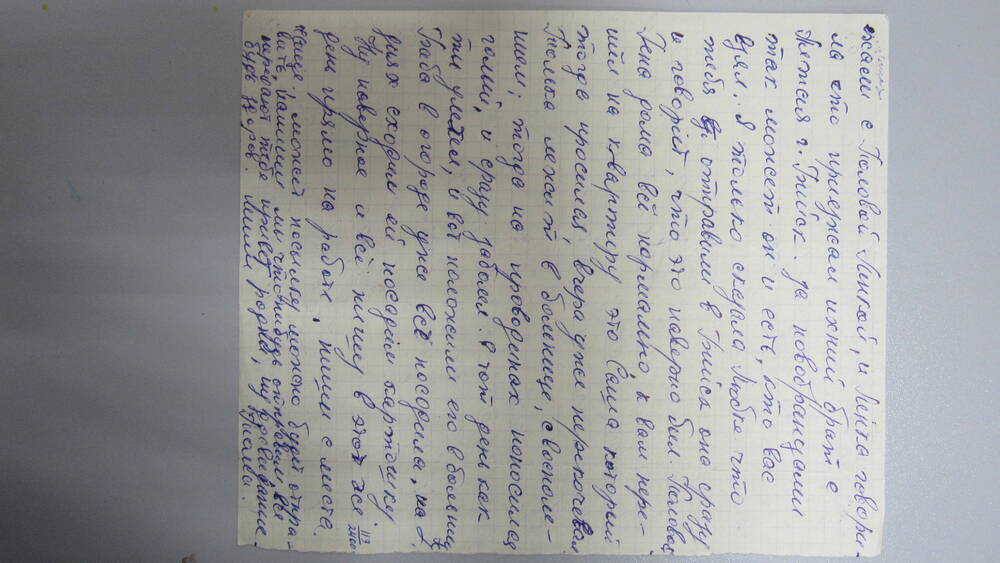 ехали с Половой Линкой, и Линка говори-
ла что приезжал ихний брат с
г. Бийск. за новобранцами
так может он и есть, кто вас
взял. Я только сказала Любке что
тебя отправили в Бийск она сразу
и говорит, что это наверно был. Половой
Гена дома всё нормально, к вам пере-
шёл на квартиру это Саша который
тогда просился, вчера уже перекочевал.
Толька лежит в больнице, с воспале-
нием; тогда на проводинах поносился
голый, и сразу заболел. в тот день как
ты улетел, и вот положили его в больницу
Баба в огороде уже всё посодила, на
днях сходим ей посадим картошку.
Ну наверное и всё пишу в этот же 113/2400
день прямо на работе, пиши с места.
чаще., может посылку можно будет отпра-
вить, напиши мы что нибудь отправим, все
передают тебе привет родня, ну досвидание.
будь здоров.